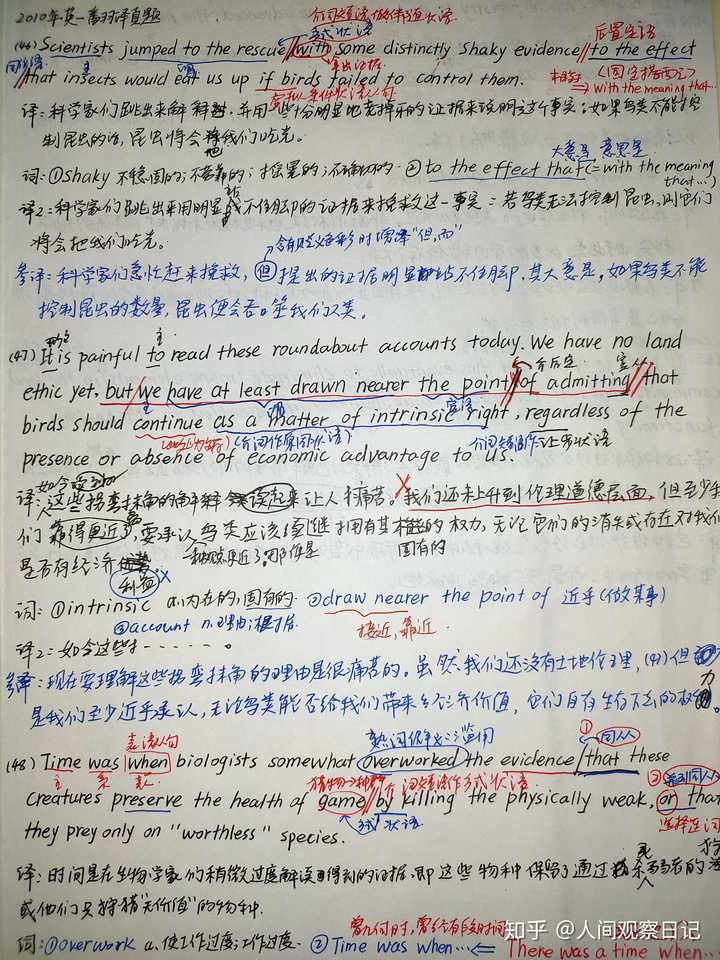 2010年英一翻译真题
介词短语做伴随状语
方式状语
后置定语
(46) Scientists jumped to the rescue with some distinctly shaky evidence to the effect
同位语
主
谓
拿出证据
相当于
(固定搭配)
that insects would eat us up if birds failed to control them.
with the meaning that...
译:科学家们跳出来解释,并用一些份明显地老掉牙的证据来说明这个事实:如果鸟类不能控
制昆虫的话,昆虫将会把我们吃光。
大意是 意思是
词:①shaky 不稳固的;不可靠的;摇晃的;不确切的. ②to the effect that (= with the meaning
that...)
译2:科学家们跳出来用明显站不住脚的证据来挽救这一事实:若鸟类无法控制昆虫,则它们
将会把我们吃光。
含有贬义色彩时增译"但,而"
参译:科学家们急忙赶来挽救,但提出的证据明显站不住脚,其大意是,如果鸟类不能
控制昆虫的数量,昆虫便会吞噬我们人类。
主
(47) It is painful to read these roundabout accounts today. We have no land
介后定
宾从
ethic yet, but we have at least drawn nearer the point of admitting that
主
谓
宾语
birds should continue as a matter of intrinsic right, regardless of the
(介词作原因状语)
介词短语作让步状语
presence or absence of economic advantage to us.
如今
译:这些拐弯抹角的解释读起来让人痛苦。我们还未上升到伦理道德层面,但至少我
们靠得更近了,要承认鸟类应该继续拥有其的权力,无论它们的消失或存在对我们
固有的
是否有经济利益
词:①intrinsic a.内在的;固有的. ②draw nearer the point of 近乎(做某事)
③account n.理由;根据.
接近,靠近
译2:如今这些......。
参译:现在要理解这些拐弯抹角的理由是很痛苦的。虽然我们还没有土地伦理,(47)但
是我们至少近乎承认,无论鸟类能否给我们带来经济价值,它们自有生存下去的权力。
表语从句
熟词僻义:滥用
①
同从
(48) Time was when biologists somewhat overworked the evidence that these
主
系
表
猎物→种群
介词短语作方式状语
②
系列同从
creatures preserve the health of game by killing the physically weak, or that
方式状语
选择连词
they prey only on "worthless" species.
译:时间是在生物学家们稍微过度解读得到的证据,即这些物种保留了通过杀死弱者的
或他们只狩猎"无价值"的物种.
曾几何时,曾经有段时间
词:①overwork a.使工作过度;工作过度. ②Time was when... ⇐ There was a time when...
知乎 @人间观察日记